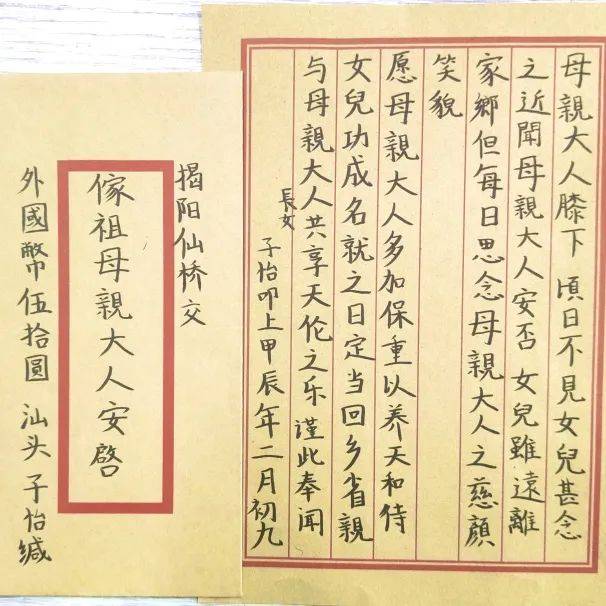 母親大人膝下 頃日不見女兒甚念
之近聞母親大人安否 女兒雖遠離
家鄉但每日思念母親大人之慈顏
笑貌
愿母親大人多加保重以养天和侍
女兒功成名就之日定当回乡省親
与母親大人共享天伦之乐 谨此奉闻
長女 子怡叩上甲辰年二月初九
揭阳仙桥交
傢祖母親大人安啓
外國幣伍拾圓 汕头 子怡缄